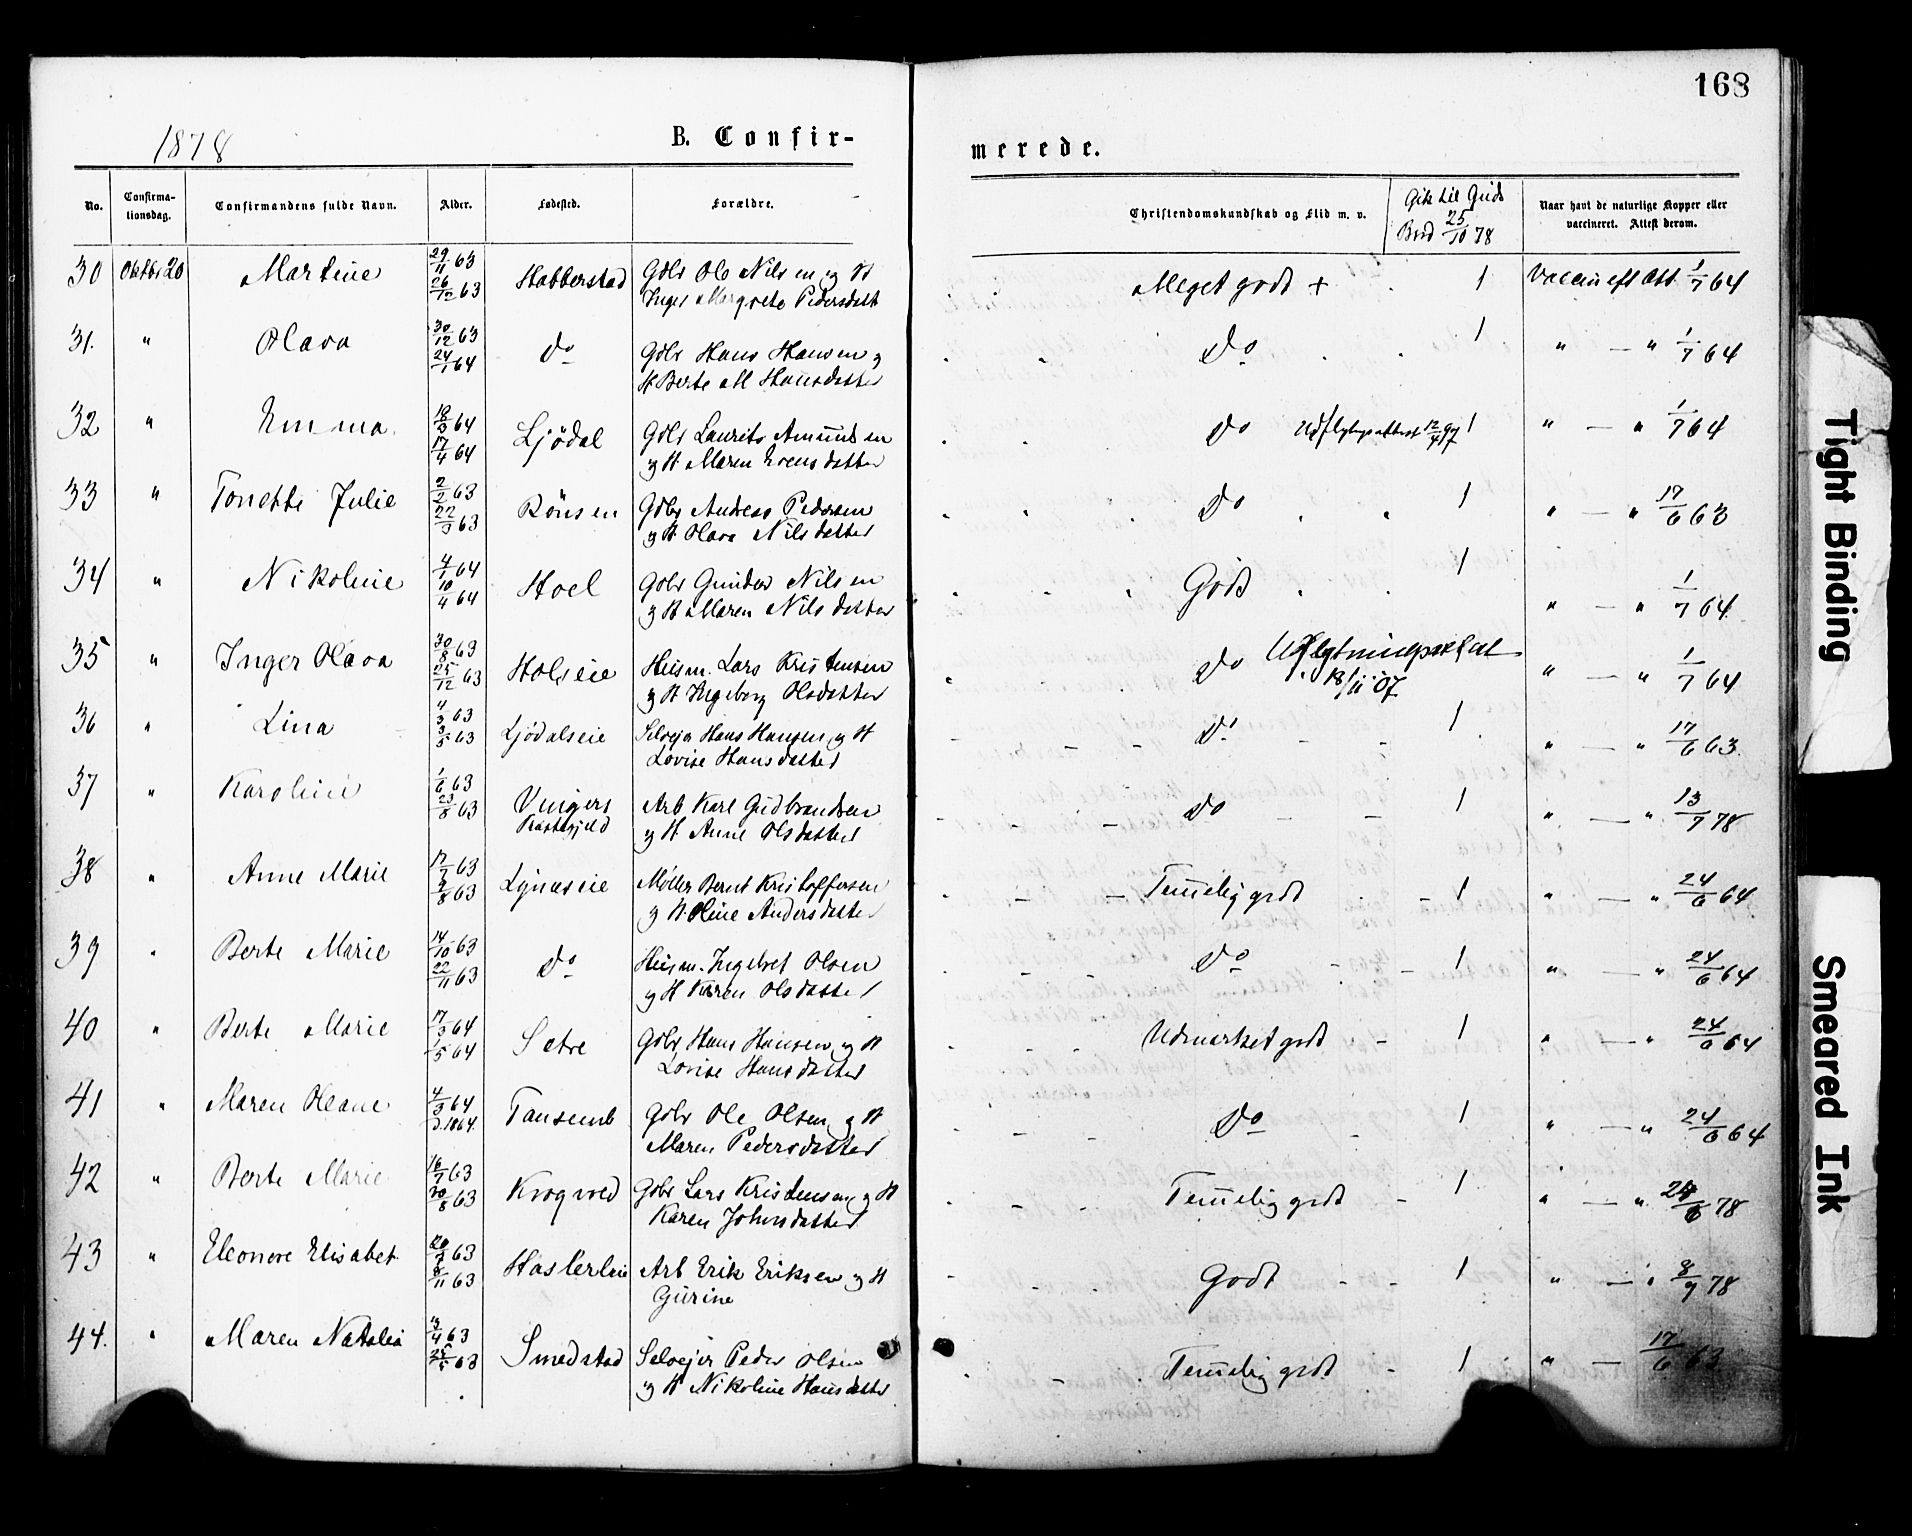 168
1878
B. Confir-
merede.
No.
Confirma-
tionsdag.
Confirmandens fulde Navn.
Alder.
Fødested.
Forældre.
Christendomskundskab og Flid m. v.
Gik til Guds
Bord 25/10 78
Naar havt de naturlige Kopper eller
vaccineret. Attest derom.
30 Oktbr 20 Martine 29/11 63 26/12 63 Habberstad Gdbr Ole Nilsen og H
Inger Margrete Pedersdatt Meget godt + 1 Vaccin eft Att. 1/7 64
31. " Olava 30/12 63 24/1 64 Do Gdbr Hans Hansen og
H Berte M Hansdatter Do 1 " — " 1/7 64
32 " Emma 18/3 64 17/4 64 Ljödal Gdbr Laurits Amundsen
og H Maren Evensdatter Do Udflytngsattest 12/4 97 1 " — " 1/7 64
33 " Tonette Julie 2/2 63 22/3 63 Rönsen Gdbr Andreas Pedersen
og H Olava Nilsdatter Do 1 " — " 17/6 63
34 " Nikoline 4/1 64 10/4 64 Hoel Gdbr Gunder Nilsen
og H Maren Nilsdatter Godt 1 " — " 1/7 64
35 " Inger Olava 30/8 63 25/12 63 Holseie Husm. Lars Kristensen
og H Ingeborg Olsdatter Do
18/11 07 " — " 1/7 64
36 " Lina 4/3 63 3/5 63 Ljödalseie Selvejer Hans Hansen og H
Lovise Hansdatter Do 1 " — " 17/6 63
37 " Karoline 1/6 63 23/8 63 Vingers
Præstegjeld Arb Karl Gudbrandsen
og H Anne Olsdatter Do 1 " — " 13/7 78
38 " Anne Marie 17/7 63 9/8 63 Lynæseie Møller Bernt Kristoffersen
og H. Oline Andersdatter Temelig godt 1 " — " 24/6 64
39 " Berte Marie 14/10 63 22/11 63 Do Husm. Ingebret Olsen
og H Karen Olsdatter Do 1 " — " 24/6 64
40 " Berte Marie 17/3 64 1/5 64 Sætre Gdbr Hans Hansen og H
Lovise Hansdatter Udmærket godt 1 " — " 24/6 64
41 " Maren Oleane 4/3 64 Tansemb Gdbr Ole Olsen og H
Maren Pedersdatter Do 1 " — " 24/6 64
42 " Berte Marie 16/7 63 30/8 63 Krogved Gdbr Lars Kristensen og H
Karen Johnsdatter Temelig godt 1 " — " 24/6 78
43 " Eleonore Elisabet 20/7 63 8/11 63 Haslerleie Arb Erik Eriksen og H
Gurine Godt 1 " — " 8/9 78
44. " Maren Natalia 3/4 63 25/5 63 Smedstad Selvejer Peder Olsen
og H Nikoline Hansdatter Temelig godt 1 " — 17/6 63
Tight Binding
Smeared Ink